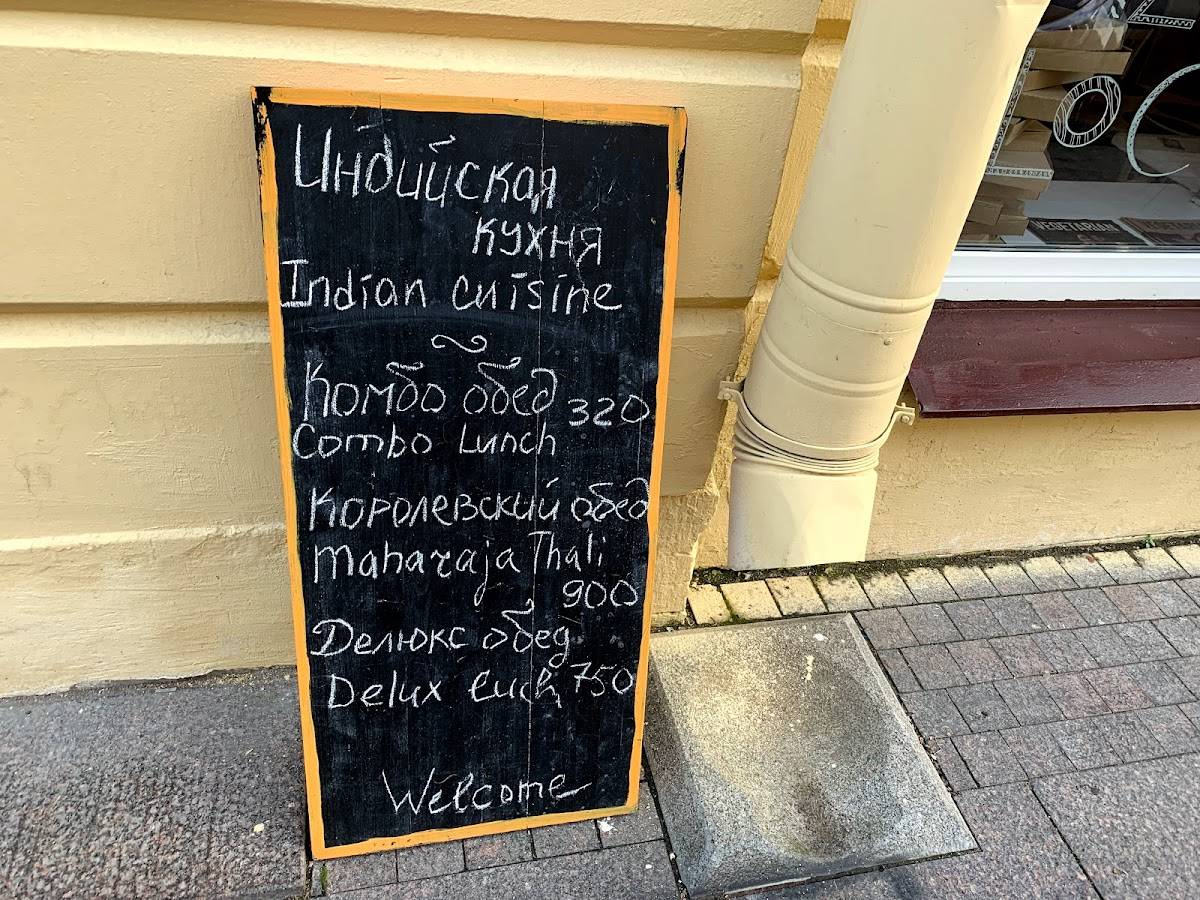 Индийская
кухня
Indian cuisine
Комбо обед 320
Combo Lunch
Королевский обед
Maharaja Thali
900
Делюкс обед
Delux luch 750
Welcome
VEGETARIAN